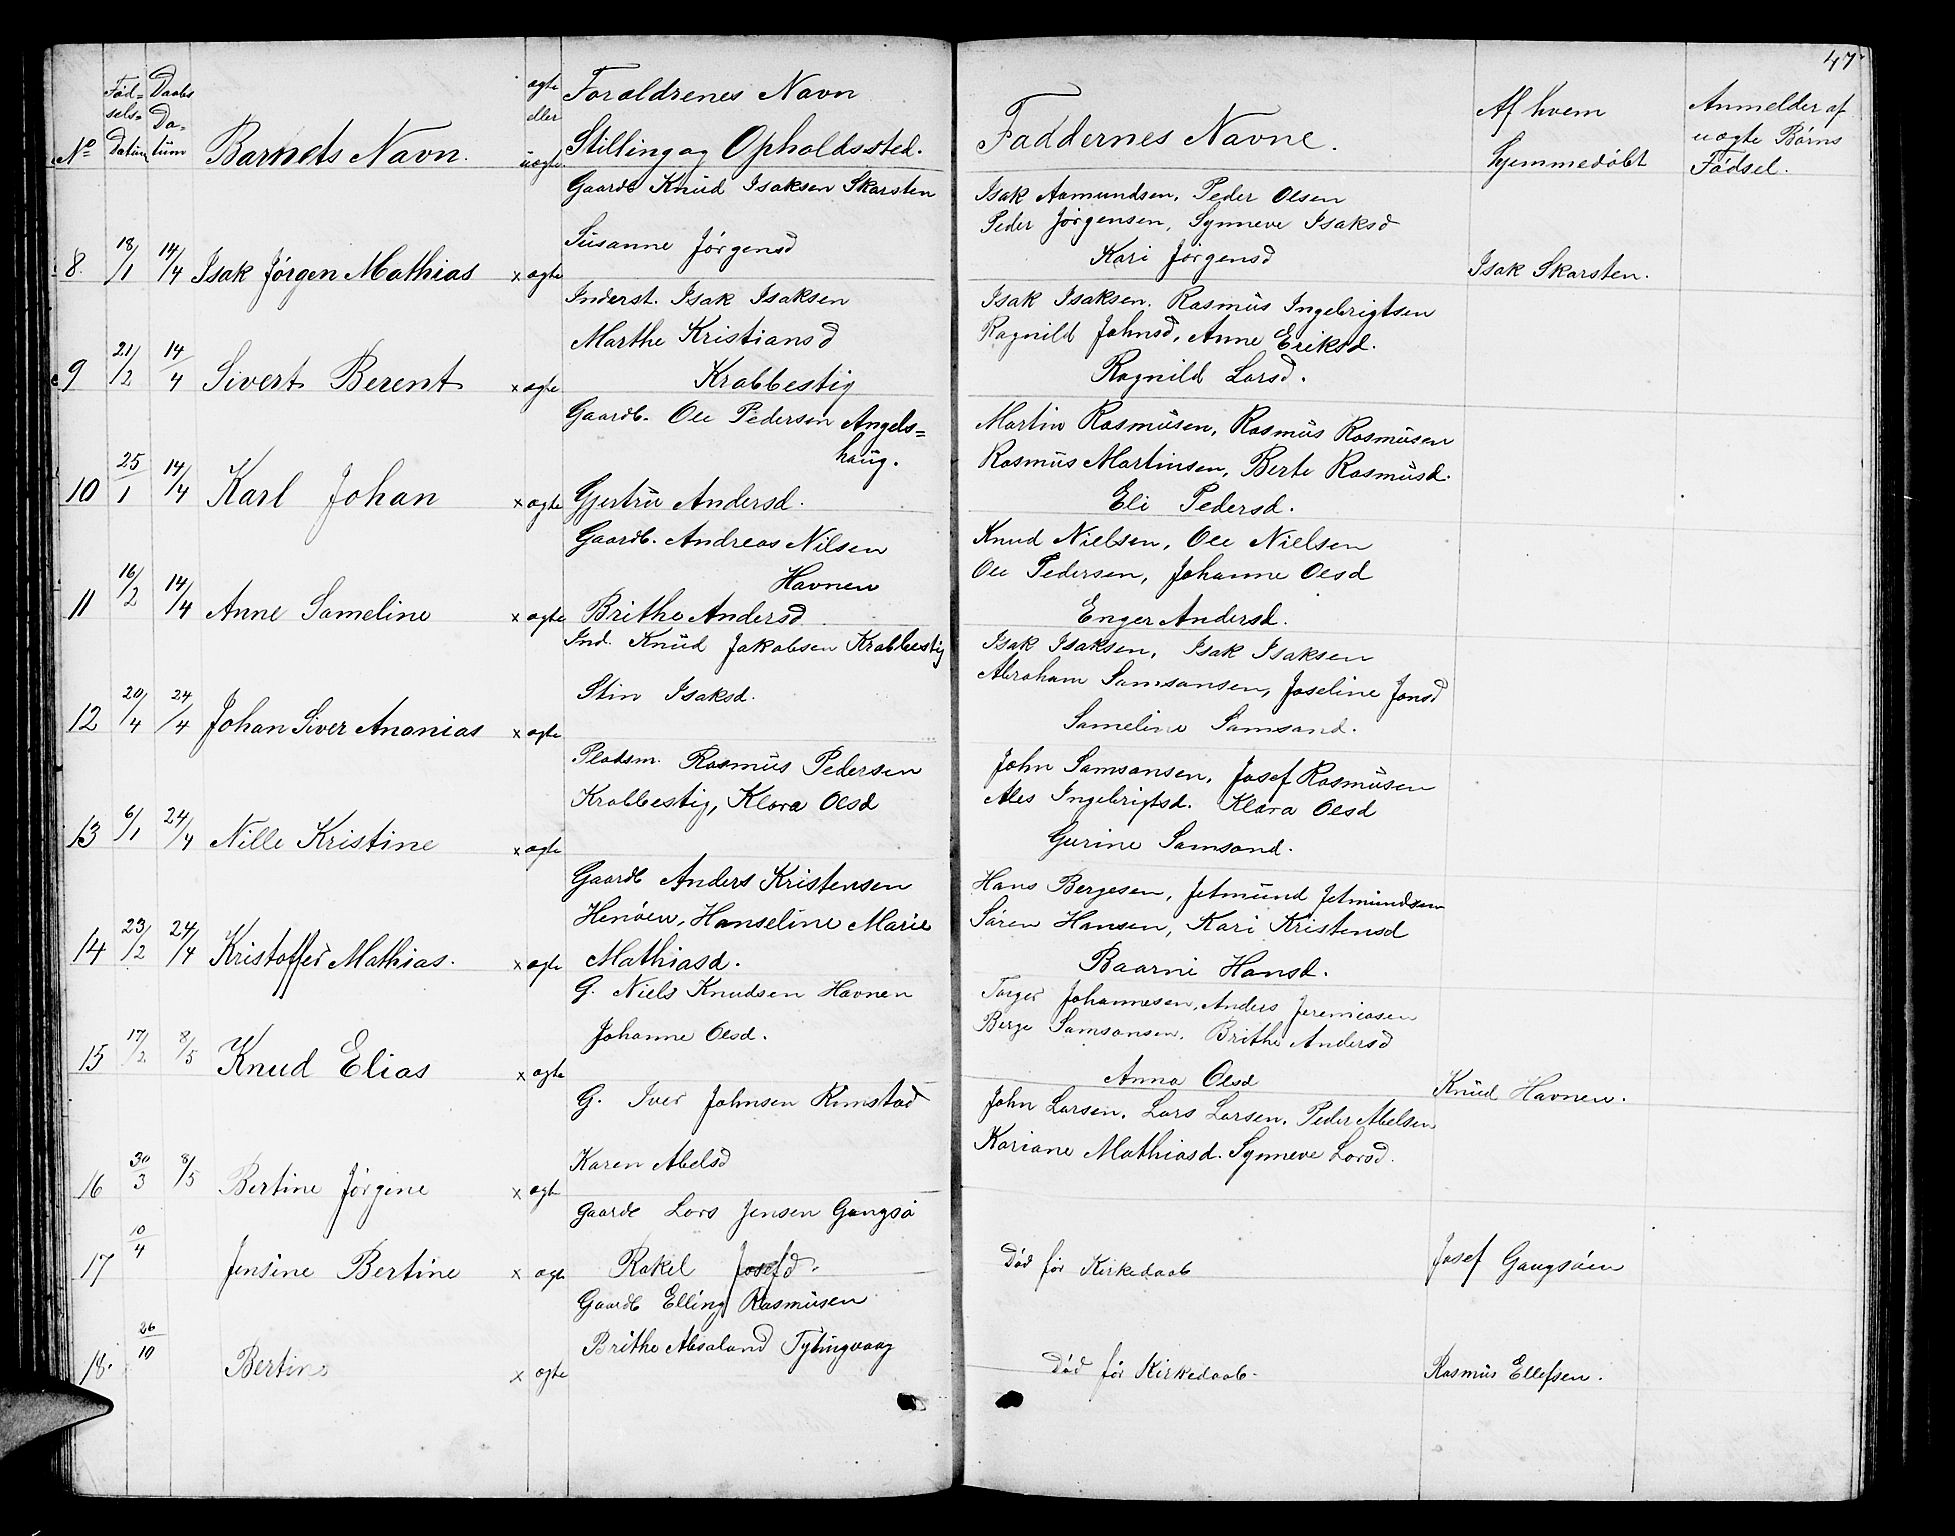 47
No
Fød=
sels=
Datum
Daabs
Da=
tum
Barnets Navn.
ægte
eller
uægte.
Forældrenes Navn
Stilling og Opholdssted.
Faddernes Navne.
Af hvem
hjemmedøbt
Anmelder af
uægte Børns
Fødsel.
Gaardb Knud Isaksen Skarsten
Susanne Jørgensd
8. 18/1 14/4 Isak Jørgen Mathias x ægte
Isak Aamundsen, Peder Olsen
Peder Jørgensen, Synneve Isaksd
Kari Jørgensd
Isak Skarsten.
Inderst. Isak Isaksen
Marthe Kristiansd
9 21/2 14/4 Sivert Berent x ægte Krabbestig
Isak Isaksen, Rasmus Ingebrigtsen
Ragnild Johnsd, Anne Eriksd.
Ragnild Larsd.
Gaardb. Ole Pedersen Angels=
haug.
10 25/1 14/4 Karl Johan x ægte Gjertru Andersd.
Martin Rasmusen, Rasmus Rasmusen
Rasmus Martinsen, Berte Rasmusd.
Eli Pedersd.
Gaardb. Andreas Nilsen
Havnen
11 16/2 14/4 Anne Sameline x ægte Brithe Andersd
Knud Nielsen, Ole Nielsen
Ole Pedersen, Johanne Olsd
Enger Andersd.
Ind. Knud Jakobsen Krabbestig
Stin Isaksd.
12 20/4 24/4 Johan Siver Ananias x ægte
Isak Isaksen, Isak Isaksen
Abraham Samsonsen, Joseline Jonsd
Sameline Samsond.
Pladsm. Rasmus Pedersen
Krabbestig, Klara Olsd
13 6/1 24/4 Nille Kristine x ægte
John Samsonsen, Josef Rasmusen
Ales Ingebrigtsd. Klara Olsd
Gurine Samsond.
Gaardb Anders Kristensen
Henøen, Hanseline Marie
14 23/2 24/4 Kristoffer Mathias. x ægte Mathiasd.
Hans Bergesen, Jetmund Jetmundsen
Søren Hansen, Kari Kristensd
Baarni Hansd.
G. Niels Knudsen Havnen
Johanne Olsd.
15 17/2 8/5 Knud Elias x ægte
Torger Johannesen, Anders Jeremiasen
Berge Samsonsen, Brithe Andersd
Anna Olsd
Knud Havnen.
G. Iver Johnsen Rimstad
Karen Abelsd
16 30/3 8/5 Bertine Jørgine x ægte
John Larsen, Lars Larsen, Peder Abelsen
Kariane Mathiasd. Synneve Larsd.
Gaardb Lars Jensen Gangsø
17 10/4 Jensine Bertine x ægte Rakel Josefd.
Død før Kirkedaab
Josef Gangsøen
Gaardb Elling Rasmusen
Brithe Absaland Tytingvaag
18. 26/10 Bertine x ægte
Død før Kirkedaab.
Rasmus Ellefsen.